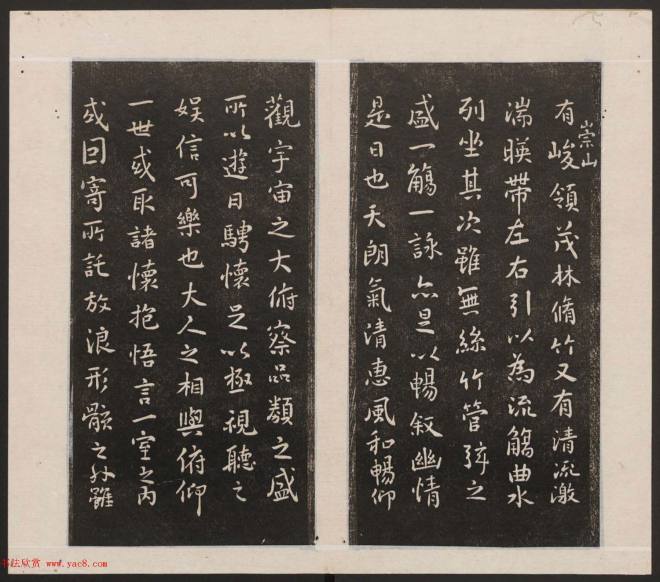 崇山
有峻領茂林脩竹又有清流激
湍暎帶左右引以為流觴曲水
列坐其次雖無絲竹管弦之
盛一觴一詠亦足以暢叙幽情
是日也天朗氣清惠風和暢仰
觀宇宙之大俯察品類之盛
所以遊目騁懷足以極視聽之
娛信可樂也夫人之相與俯仰
一世或取諸懷抱悟言一室之內
或因寄所託放浪形骸之外雖
书法欣赏 www.yac8.com